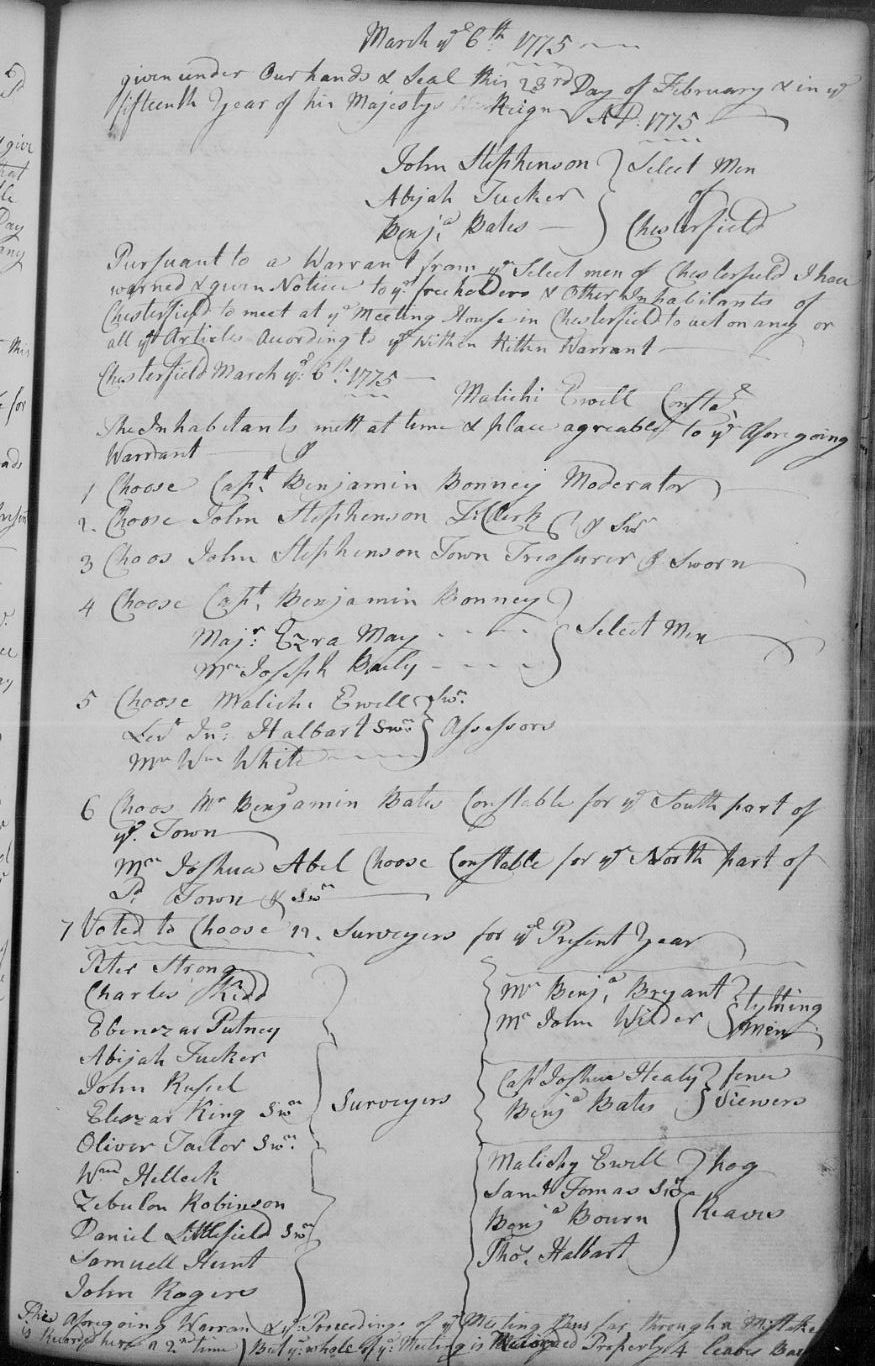 March yᵉ 6th 1775
given under Our hands & Seal this 23rd Day of February & in yᵉ
fifteenth Year of his Majestys Reign AD. 1775
John Stephenson } Select Men
Abijah Tucker } of
Benjᵃ Bates } Chesterfield
Pursuant to a Warrant from yᵉ Select men of Chesterfield I have
warned & given Notice to yᵉ freeholders & Other Inhabitants of
Chesterfield to meet at yᵉ Meeting House in Chesterfield to act on any or
all yᵉ Articles According to yᵉ Within Ritten Warrant
Chesterfield March yᵉ 6th 1775
Malichi Ewell Constᵃ
The Inhabitants mett at time & place agreable to yᵉ Aforegoing
Warrant
1 Choose Capt. Benjamin Bonney Moderator
2 Choose John Stephenson T: Clerk & Swⁿ
3 Choos John Stephenson Town Treasurer & Sworn
4 Choose Capt. Benjamin Bonney
Majr. Ezra May } Select Men
Mr Joseph Baily
5 Choose Malichi Ewell Swⁿ
Levt Jnᵒ: Halbart Swⁿ } Assessors
Mr Wm White
6 Choos Mr Benjamin Bates Constable for yᵉ South part of
yᵉ Town
Mr Joshua Abel Choose Constable for yᵉ North part of
Sd Town & Swⁿ
7 Voted to Choose 12 Surveyers for yᵉ Present Year
Peter Strong
Charles Kidd
Ebenezar Putney
Abijah Tucker
John Rusel
Eleazar King Swⁿ } Surveyers
Oliver Tailor Swⁿ
Wm Helleck
Zebulon Robinson
Daniel Littlefield Swⁿ
Samuell Hunt
John Rogers
Mr Benjᵃ Bryant } tything
Mr John Wilder } Men
Capt Joshua Healy } fence
Benjᵃ Bates } Viewers
Malichy Ewell } hog
Samll Tomas Swⁿ
Benjᵃ Bourn } Reaves
Thoˢ. Halbart
The Aforegoing Warran & yᵉ Proceedings of yᵉ Meeting thus far through a Misstake
is Record here a 2nd time } But yᵉ whole of yᵉ Meeting is Recorded Properly 4 leaves